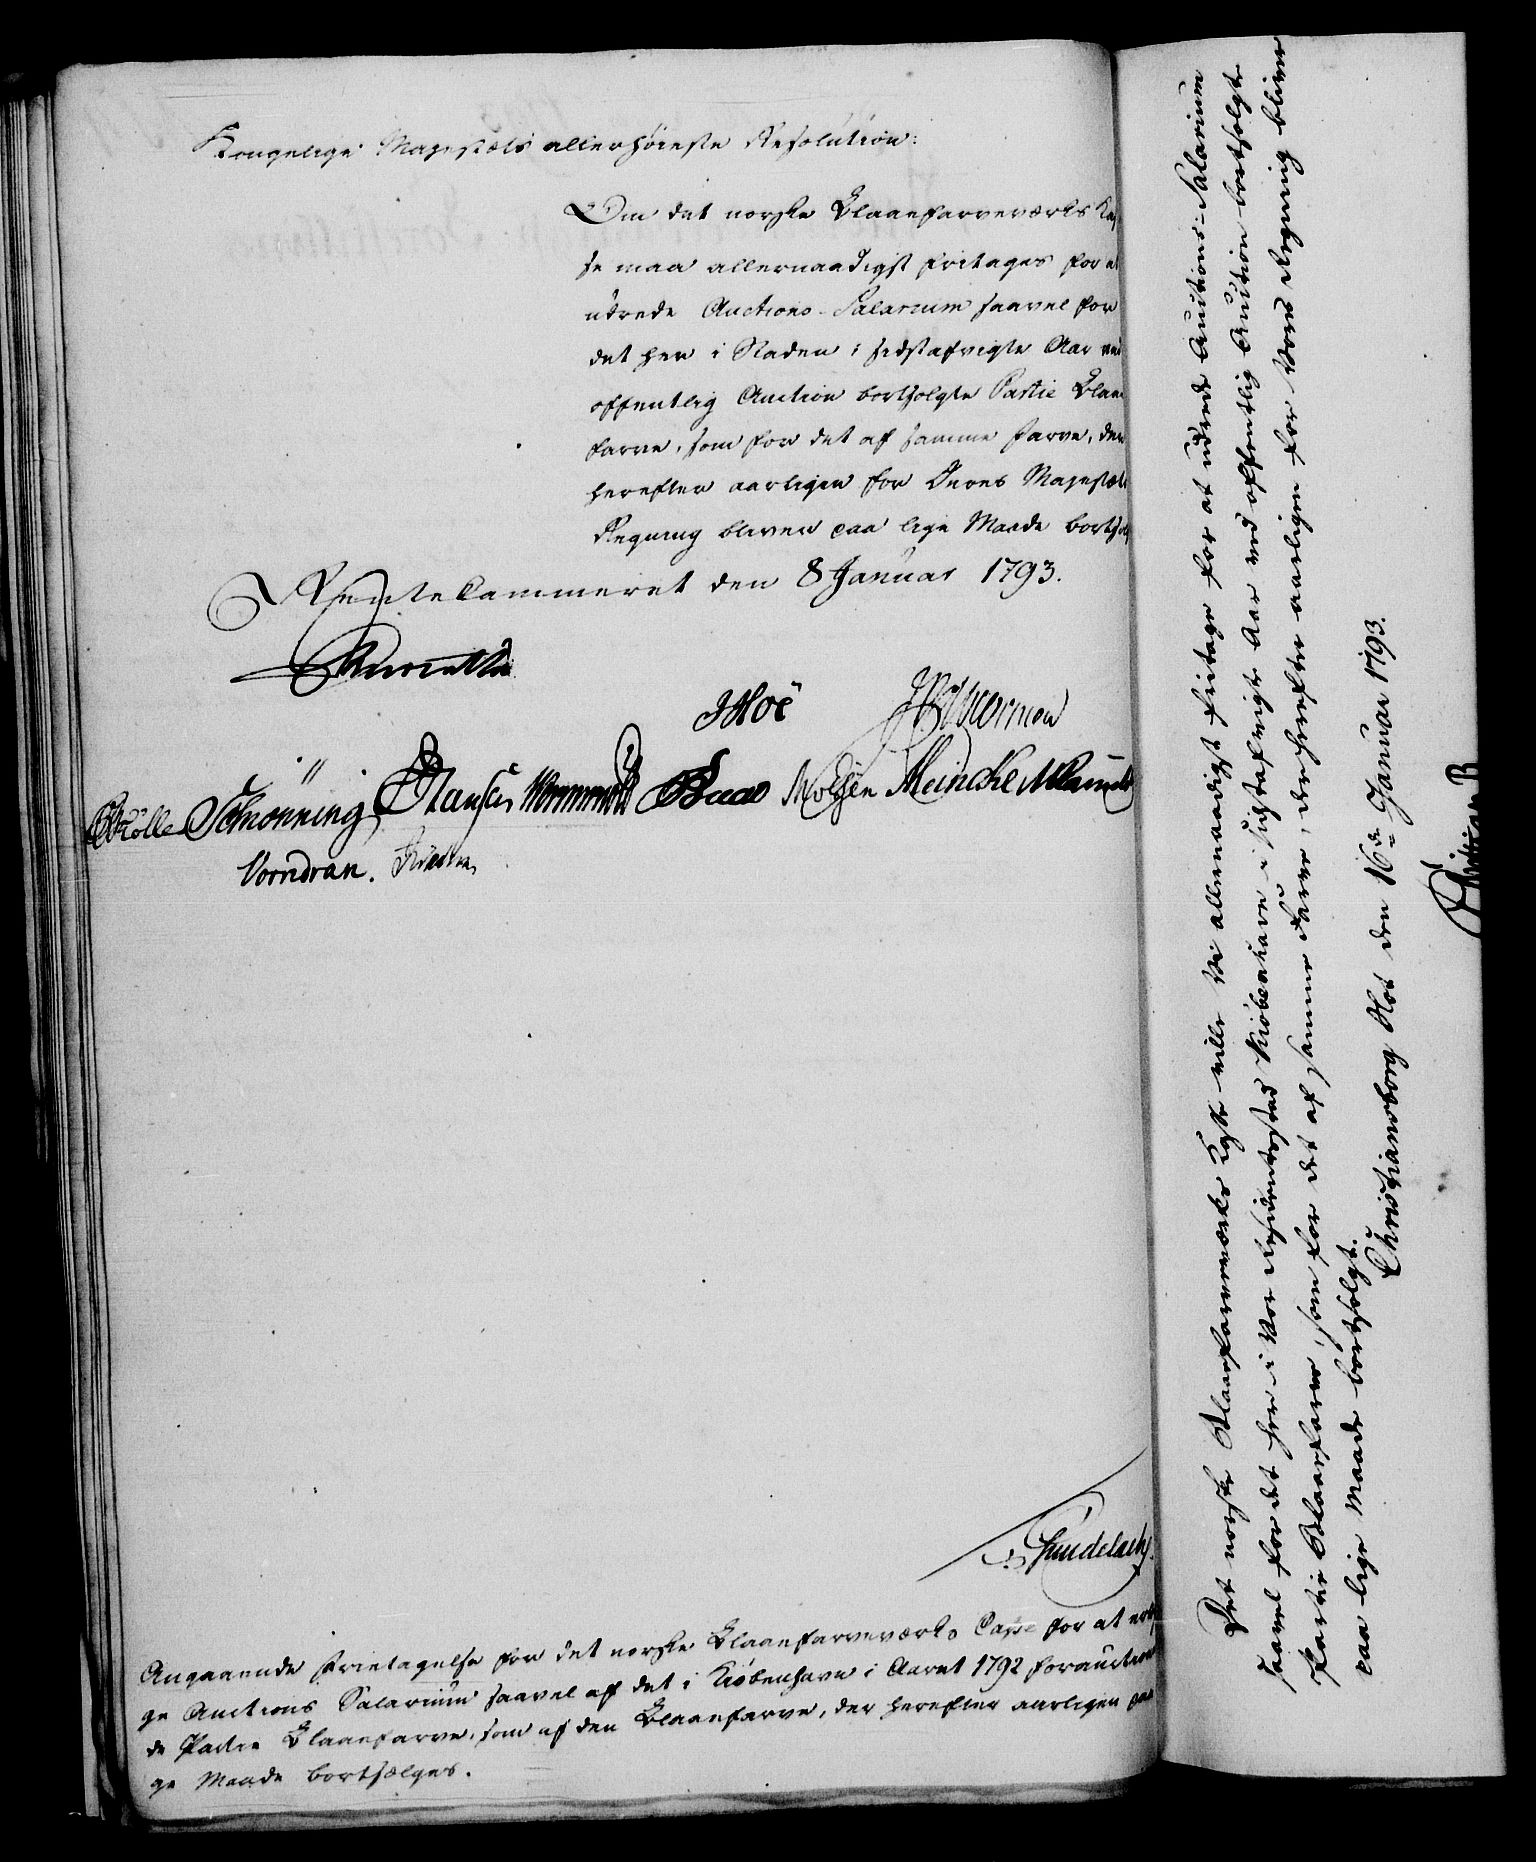 Kongelige Majestæts allerhøieste Resolution:
Om det norske Blaafarveværks Kas
se maa allernaadigst fritages for at
udrede Auctions-Salarium saavel for
det her i Staden i sidstafvigte Aar ved
offentlig Auction bortsolgte Partie Blaae
farve, som for det af samme Farve, der
herefter aarligen for Deres Majestæts
Regning bliver paa lige Maade bortsolgt
Rentekammeret den 8 Januar 1793.
JHoë
Schønning Hansen Wormskiold
Meincke
Vorndran.
Gundelach.
Angaaende Fritagelse for det norske Blaaefarveværks Casse for at erlæg
ge Auctions Salarium saavel af det i Kiøbenhavn i Aaret 1792 forauctione
de Partie Blaaefarve, som af den Blaaefarve, der herefter aarligen paa
ge Maade bortsælges.
Det norske Blaafarveværks Casse ville Vi allernaadigst fritage for at udrede Auctions-Salarium
saavel for det her i Vor Residentzstad Kiøbenhavn i sidstafvigte Aar ved offentlig Auction bortsolgte
Partie Blaafarve, som for det af samme Farve, der herefter aarligen for Vores Regning bliver
paa lige Maade bortsolgt.
Christiansborg Slot den 16de Januar 1793.
Christian R